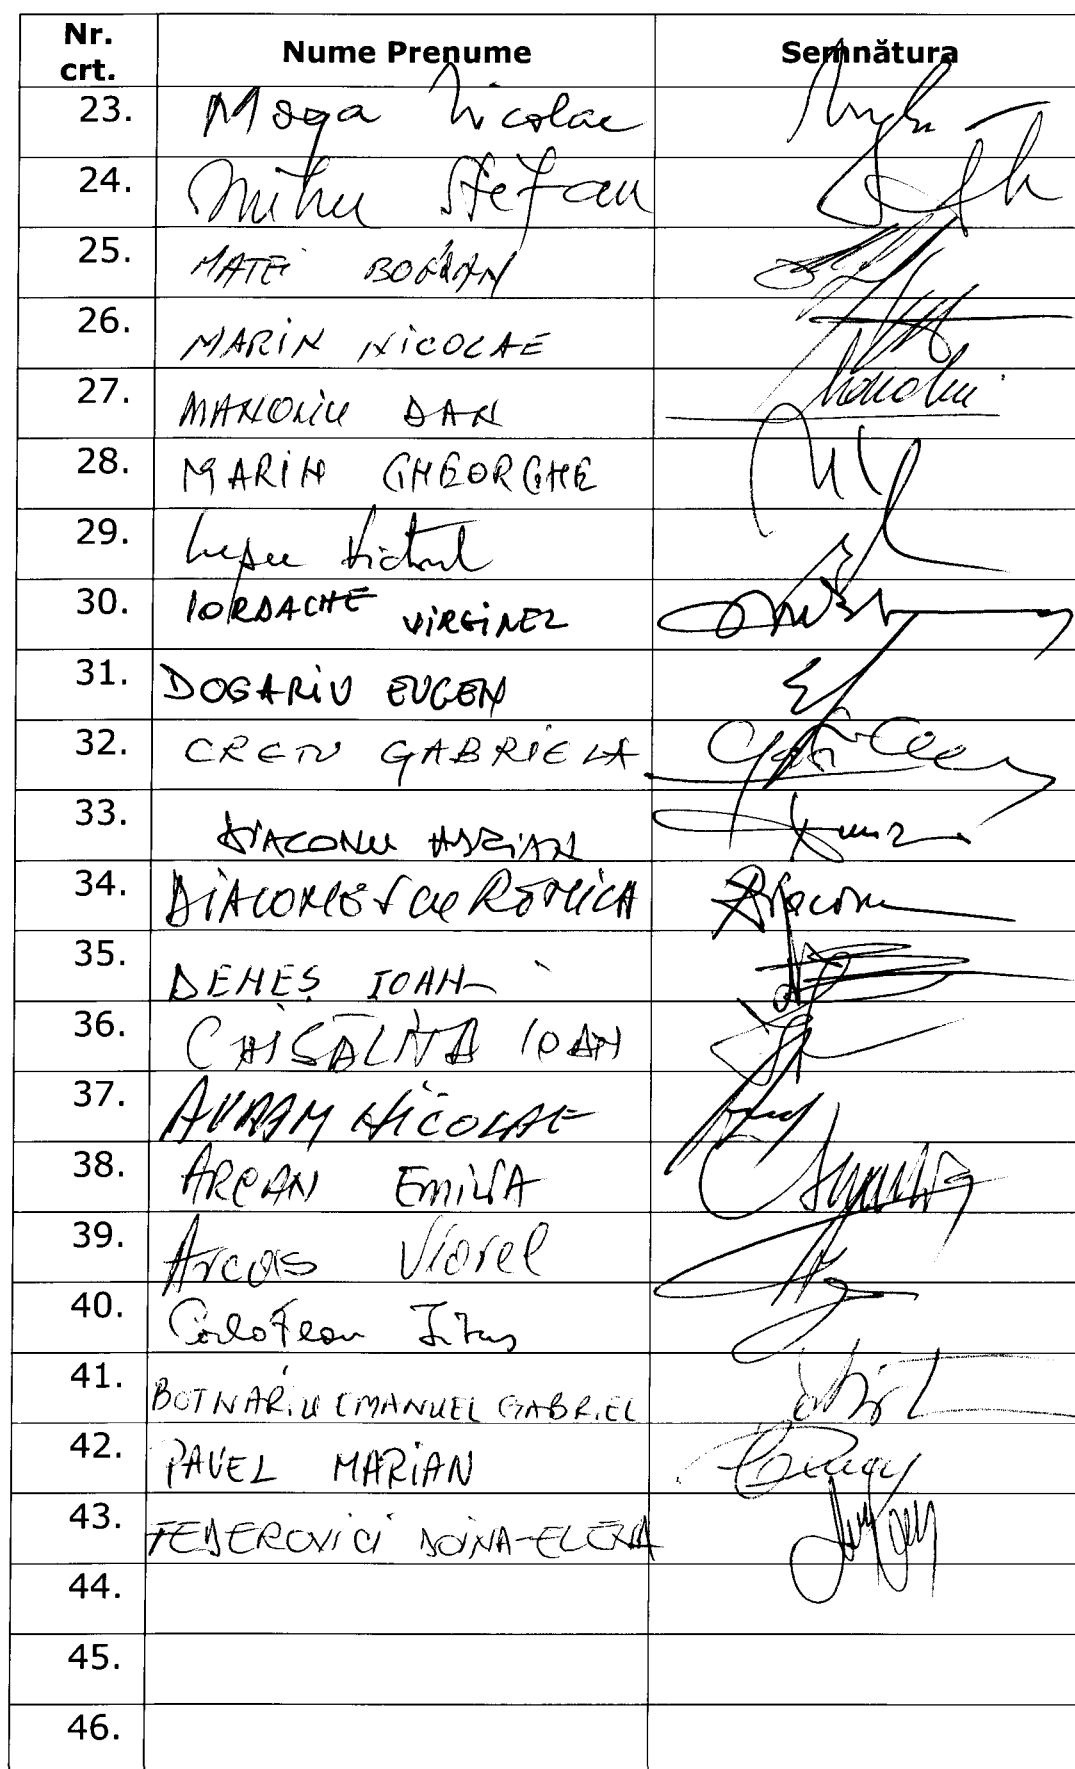 Nr. crt. Nume Prenume Semnătura
23. Moga Nicolae
24. Mihu Ștefan
25. MATEI BOGDAN
26. MARIN NICOLAE
27. MANOLIU DAN
28. MARIN GHEORGHE
29. Lupu Victor
30. IORDACHE VIRGINEL
31. DOGARIU EUGEN
32. CRETU GABRIELA
33. DIACONU ADRIAN
34. DIACONESCU RONICA
35. DENEȘ IOAN
36. CHIȘĂLIȚĂ IOAN
37. AVRAM NICOLAE
38. ARCAN EMILIA
39. Arcaș Viorel
40. Corlățean Titus
41. BOTNARIU EMANUEL GABRIEL
42. PAVEL MARIAN
43. FEDEROVICI DOINA-ELENA
44.
45.
46.